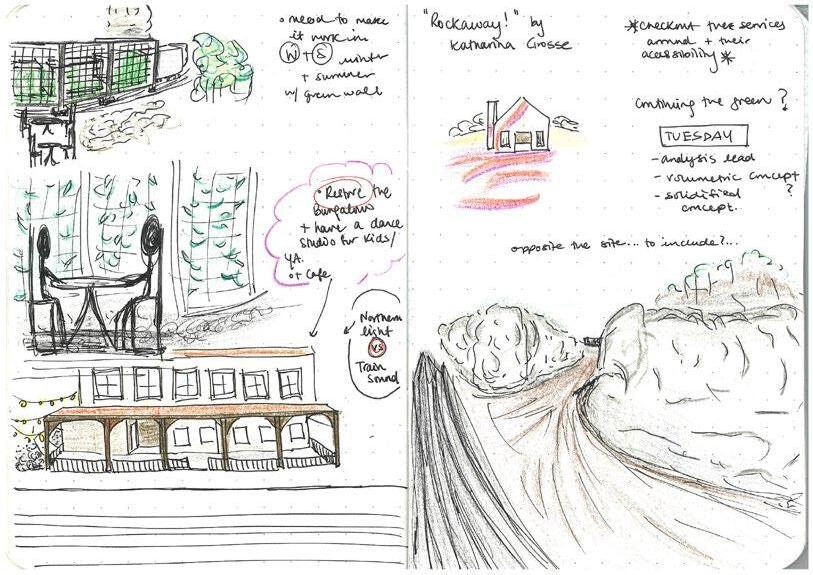 • need to make
it work in
W + S winter
+ summer
w/ green wall
• Restore the
bungalow
+ have a dance
studio for kids/
YA.
o+ Cafe
Northern
light
vs
Train
Sound
"Rockaway!" by
Katharina Grosse
*checkout tree services
around + their
acessibility*
continuing the green?
TUESDAY
- analysis lead
- volumetric concept
- solidified ?
concept.
opposite the site... to include?...